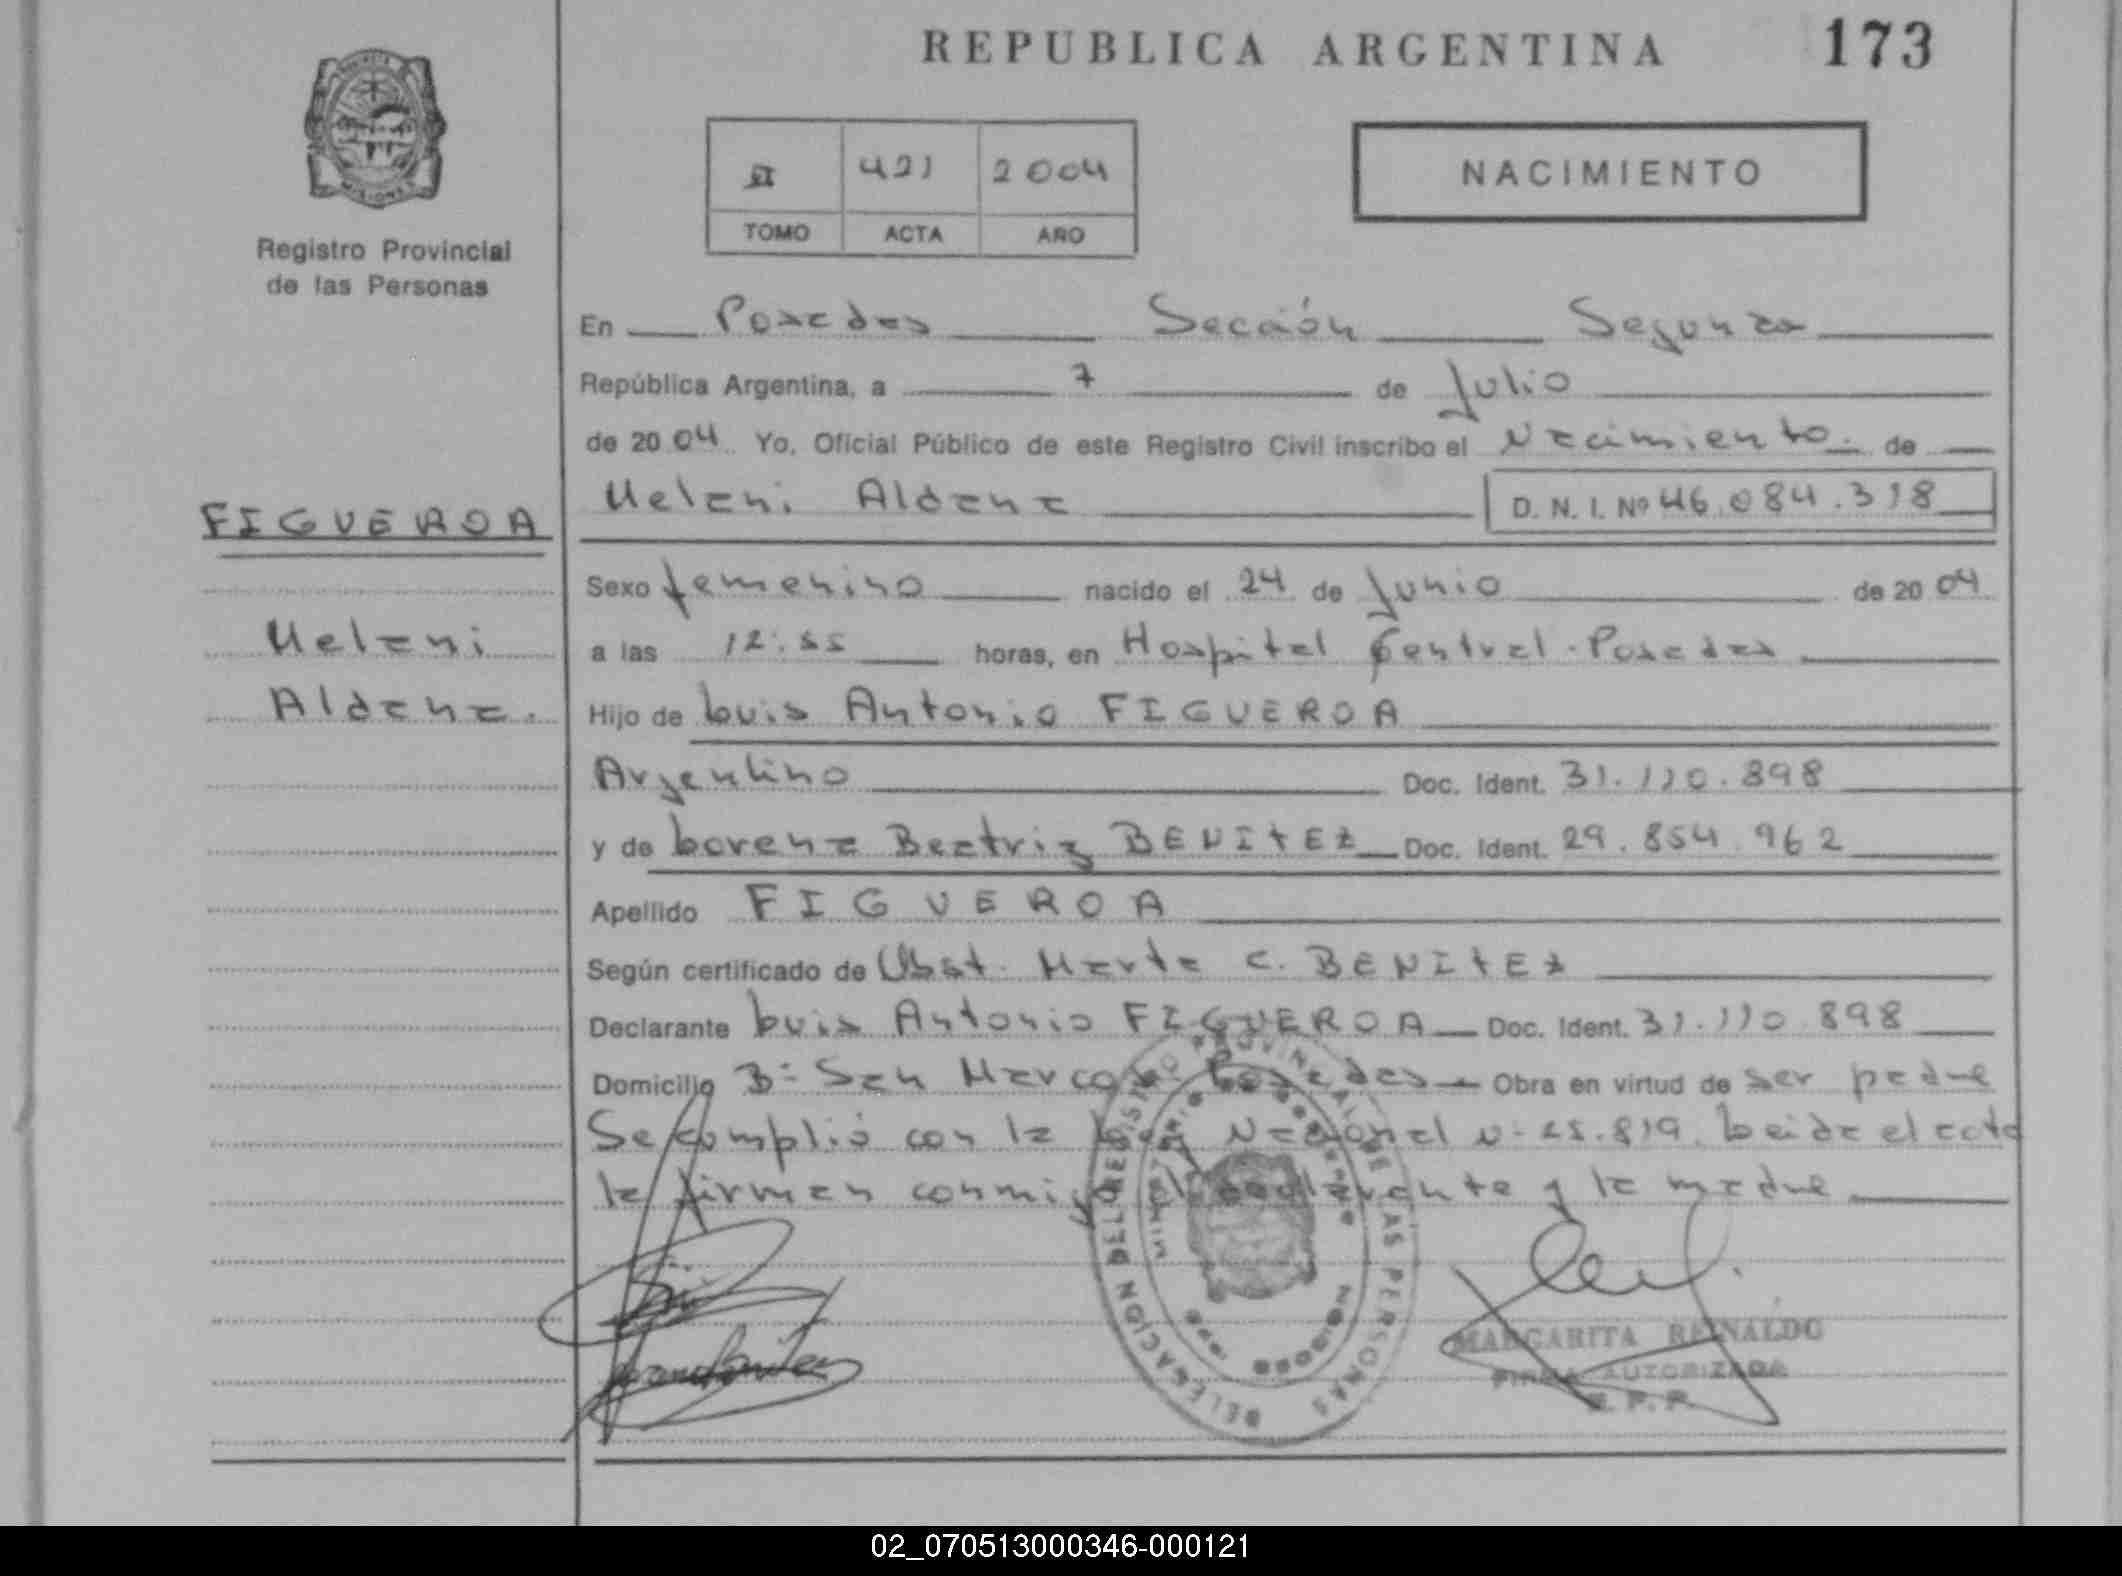 REPUBLICA ARGENTINA 173
II 421 2004
TOMO ACTA AÑO
NACIMIENTO
Registro Provincial
de las Personas
En Posadas Sección Segunda
República Argentina, a 7 de Julio
de 2004 Yo, Oficial Público de este Registro Civil inscribo el Nacimiento de
Melani Aldana D. N. I. Nº 46.084.318
FIGUEROA
Melani
Aldana.
Sexo femenino nacido el 24 de Junio de 2004
a las 12:55 horas, en Hospital Central - Posadas
Hijo de Luis Antonio FIGUEROA
Argentino Doc. Ident. 31.110.898
y de Lorena Beatriz BENITEZ Doc. Ident. 29.854.962
Apellido FIGUEROA
Según certificado de Obst. Marta C. BENITEZ
Declarante Luis Antonio FIGUEROA Doc. Ident. 31.110.898
Domicilio Bº San Marcos Posadas Obra en virtud de ser padre
Se cumplió con la Ley Nacional nº 25.819. Leida el acta
la firman conmigo el declarante y la madre
DELEGACION DEL REGISTRO PROVINCIAL DE LAS PERSONAS
MARGARITA REINALDO
FIRMA AUTORIZADA
R. P. P.
02_070513000346-000121